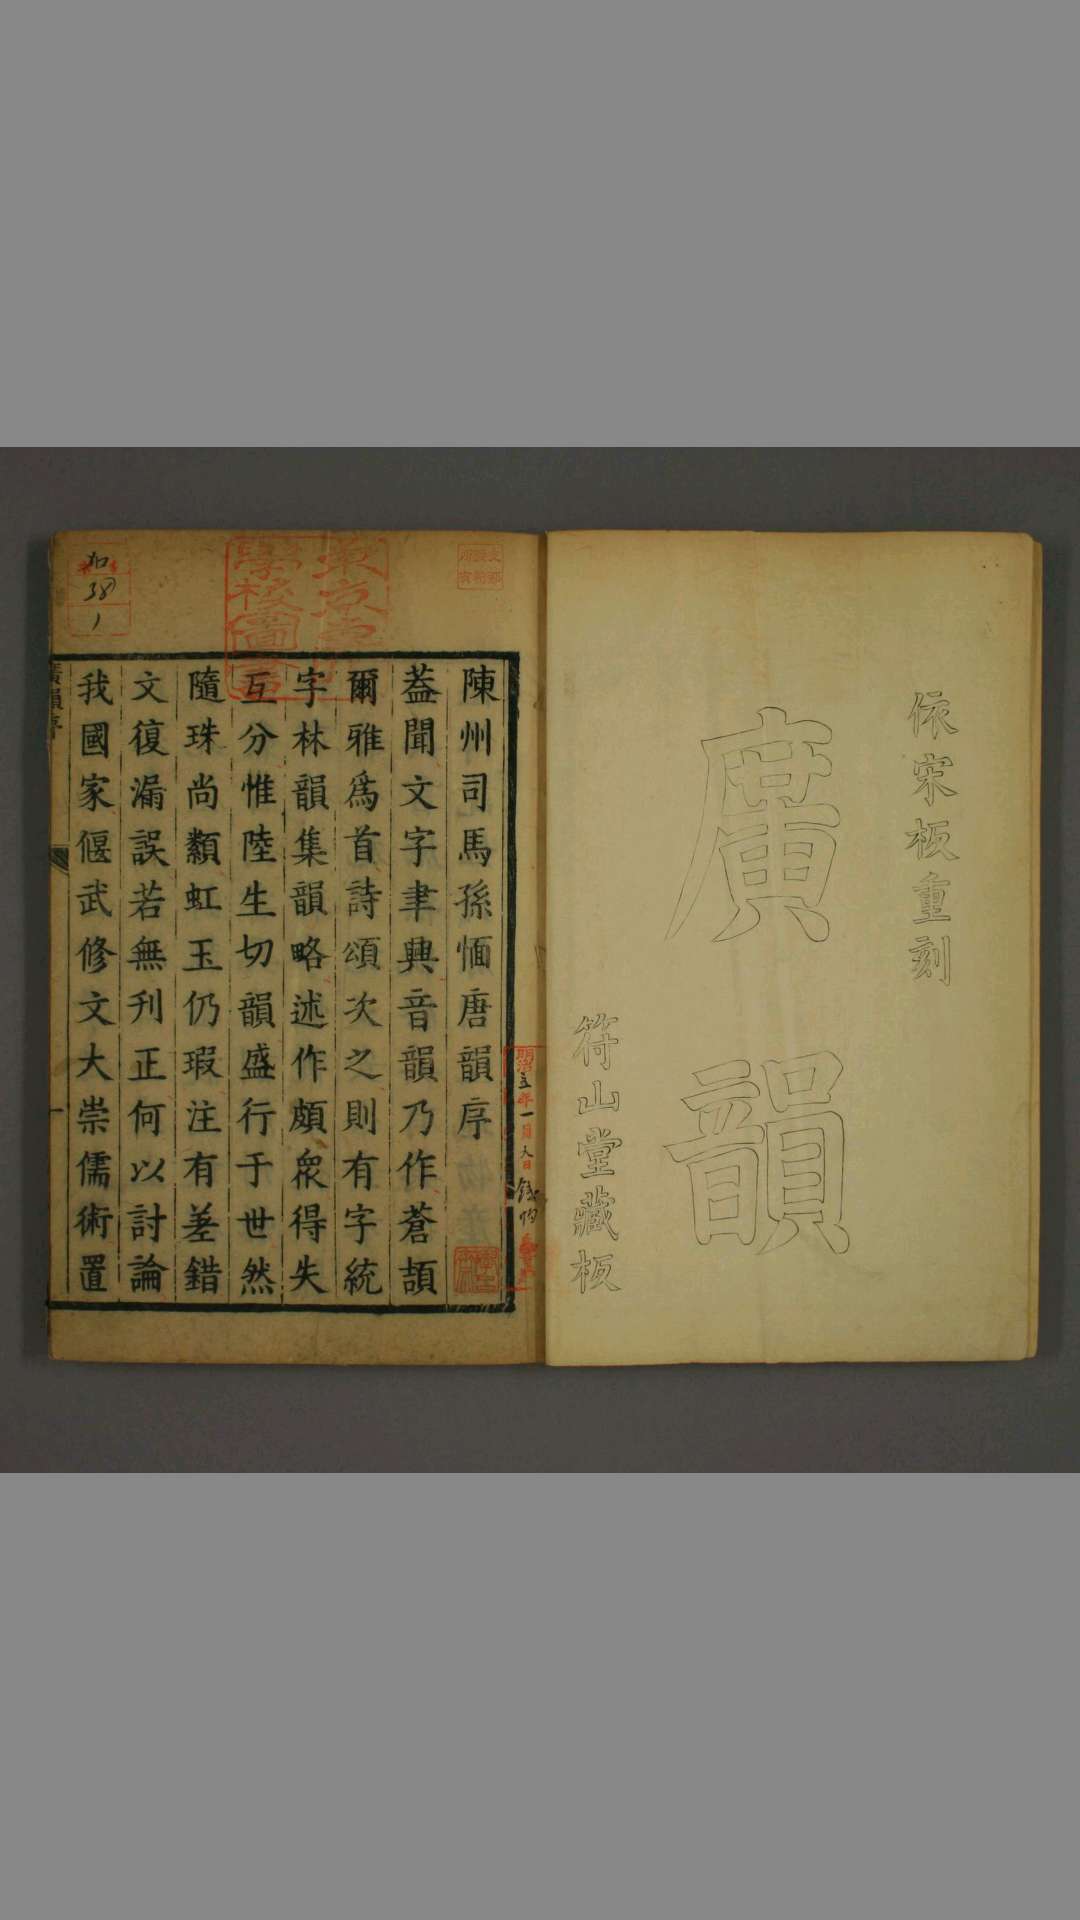 依宋板重刻
廣韻
符山堂藏板
陳州司馬孫愐唐韻序
蓋聞文字聿興音韻乃作蒼頡
爾雅爲首詩頌次之則有字統
字林韻集韻略述作頗衆得失
互分惟陸生切韻盛行于世然
隨珠尚纇虹玉仍瑕注有差錯
文復漏誤若無刊正何以討論
我國家偃武修文大崇儒術置
廣韻序
一
38
1